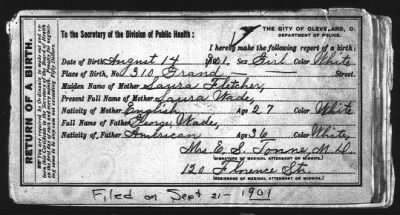 THE CITY OF CLEVELAND, O.
DEPARTMENT OF POLICE.
To the Secretary of the Division of Public Health:
I hereby make the following report of a birth:
Date of Birth August 14 1901. Sex Girl Color White
Place of Birth, No. 310 Grand Street.
Maiden Name of Mother Laura Fletcher,
Present Full Name of Mother Laura Wade,
Nativity of Mother English Age 27 Color White
Full Name of Father George Wade,
Nativity of Father American Age 36 Color White,
Mrs E. S. Tonne M.D.
(SIGNATURE OF MEDICAL ATTENDANT OR MIDWIFE.)
120 Florence Str.
(RESIDENCE OF MEDICAL ATTENDANT OR MIDWIFE.)
Filed on Sept 21- 1901
RETURN OF A BIRTH.